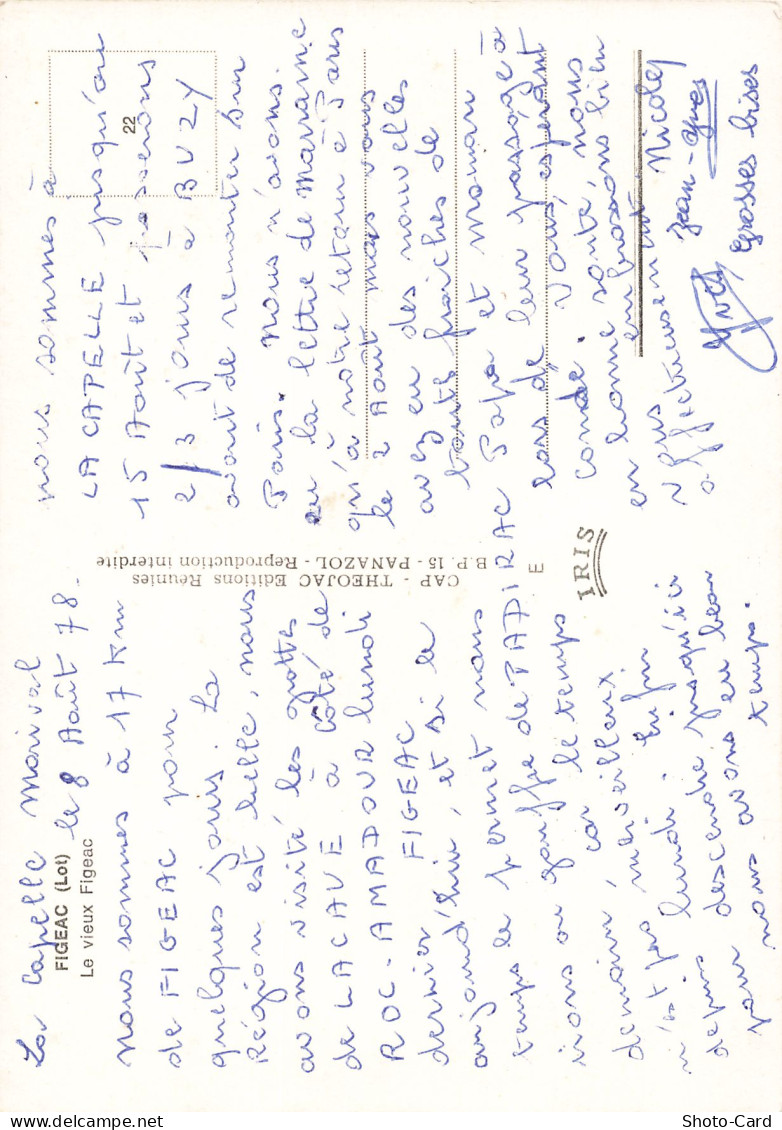 La Capelle Marival
FIGEAC (Lot)
le 8 Août 78.
Le vieux Figeac
nous sommes à 17 km
de FIGEAC pour
quelques jours. La
Région est belle, nous
avons visité les grottes
de LACAVE à côté de
ROC-AMADOUR lundi
dernier FIGEAC
aujourd'hui, et si le
temps le permet nous
irons au gouffre de PADIRAC
demain, car le temps
n'est pas merveilleux
depuis lundi. Enfin
pour descendre jusqu'ici
nous avons eu beau
temps.
CAP - THEOJAC Editions Réunies
B.P. 15 - PANAZOL - Reproduction interdite
E
IRIS
22
nous sommes à
LA CAPELLE jusqu'au
15 Août et passerons
2/3 jours à BUZY
avant de remonter sur
Paris. nous n'avons
eu la lettre de marraine
qu'à notre retour à Paris
le 2 Aout mais vous
avez eu des nouvelles
toute fraiches de
Papa et maman
lors de leur passage à
conde. Vous espérant
en bonne santé, nous
vous embrassons bien
affectueusement Nicole
Jean-Yves
Yves
Grosses bises
Shoto-Card